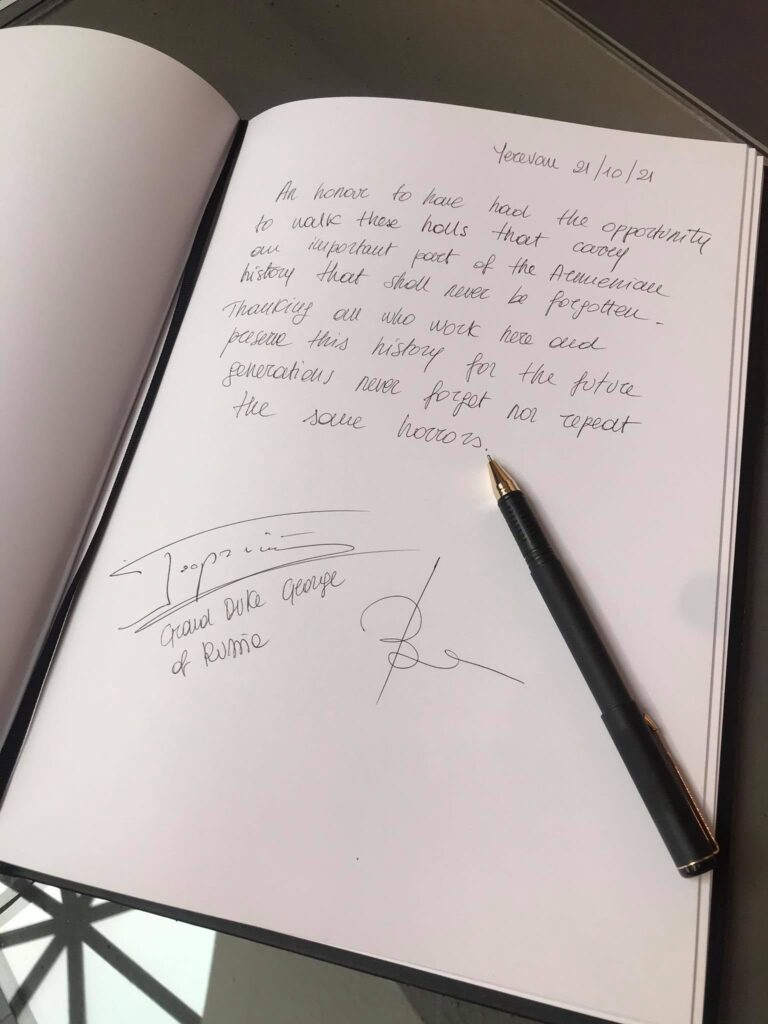 Yerevan 21/10/21
An honour to have had the opportunity
to walk these halls that carry
an important part of the Armenian
history that shall never be forgotten.
Thanking all who work here and
preserve this history for the future
generations never forget nor repeat
the same horrors.
Grand Duke George
of Russia